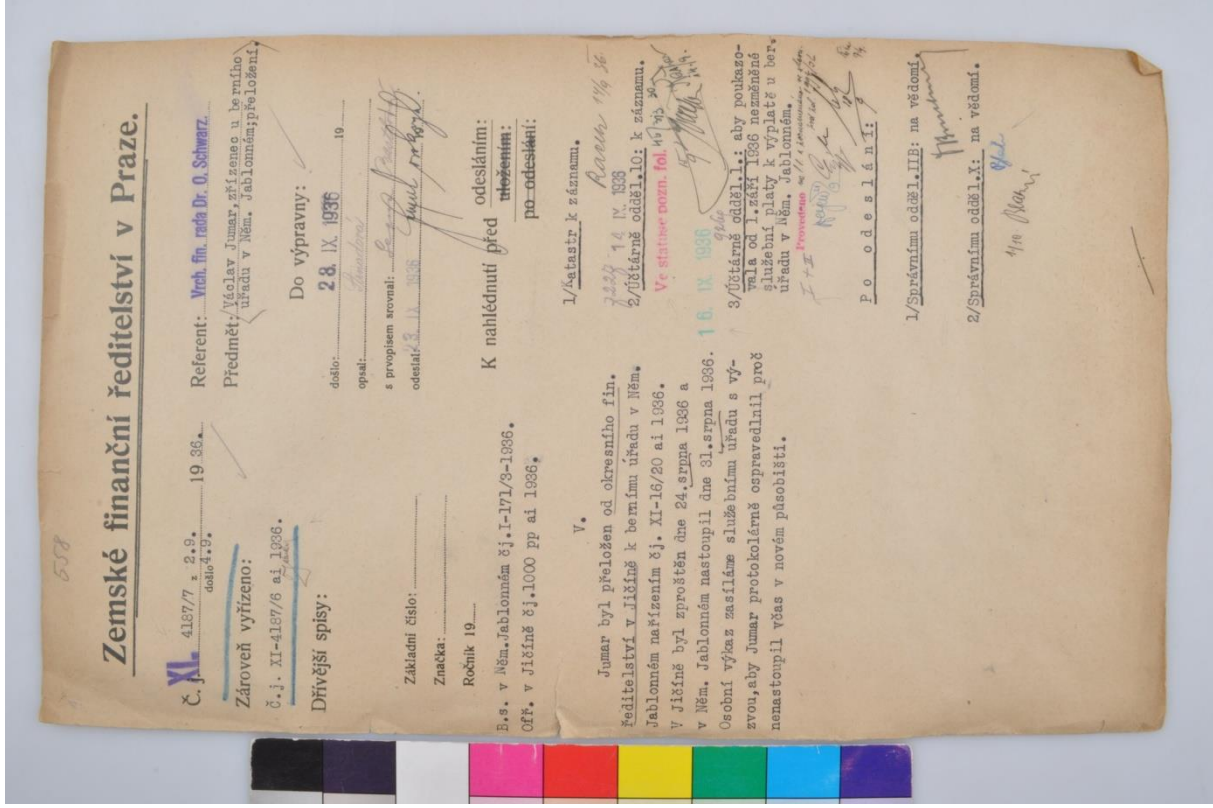 558
Zemské finanční ředitelství v Praze.
Č. j. XI. 4187/7 z 2.9. 19 36.
došlo 4.9.
Referent: Vrch. fin. rada Dr. O. Schwarz.
Zároveň vyřízeno:
Č.j. XI-4187/6 ai 1936.
Předmět: Václav Jumar, zřízenec u berního
úřadu v Něm. Jablonném; přeložení.
Dřívější spisy:
Do výpravny:
došlo: 28. IX. 1936 19
opsal:
s prvopisem srovnal:
odeslal: 23. IX. 1936
Základní číslo:
Značka:
Ročník 19
K nahlédnutí před odesláním:
uložením:
po odeslání:
B.s. v Něm.Jablonném čj.I-171/3-1936.
Offř. v Jičíně čj.1000 pp ai 1936.
V.
Jumar byl přeložen od okresního fin.
ředitelství v Jičíně k bernímu úřadu v Něm.
Jablonném nařízením čj. XI-16/20 ai 1936.
V Jičíně byl zproštěn dne 24.srpna 1936 a
v Něm. Jablonném nastoupil dne 31.srpna 1936.
Osobní výkaz zasíláme služebnímu úřadu s vý-
zvou,aby Jumar protokolárně ospravedlnil proč
nenastoupil včas v novém působišti.
1/Katastr k záznamu.
7227 14 IX. 1936
2/Účtárně odděl.10: k záznamu.
Ve statuse pozn. fol.
16. IX. 1936
3/Účtárně odděl.1.: aby poukazo-
vala od 1.září 1936 nezměněné
služební platy k výplatě u ber.
úřadu v Něm. Jablonném.
I + II Provedeno
Po odeslání:
1/Správnímu odděl.IIB: na vědomí.
2/Správnímu odděl.X: na vědomí.
1/10